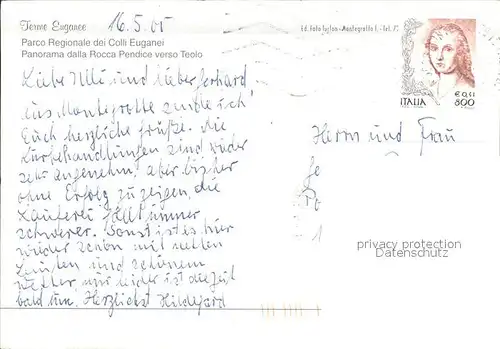 Terme Euganee
16.5.05
Parco Regionale dei Colli Euganei
Panorama dalla Rocca Pendice verso Teolo
Ed. Foto
€ 0,41
ITALIA 800
Liebe Ulli und lieber Gerhard,
aus Montegrotto sende ich
Euch herzliche Grüße. Die
Kurbehandlungen sind wieder
sehr angenehm, aber bisher
ohne Erfolg zu zeigen, die
Lauferei fällt immer
schwerer. Sonst ist es hier
wieder schön mit netten
Leuten und schönem
Wetter, nur leider ist die Zeit
bald um. Herzlichst Hildegard
Herrn und Frau
privacy protection
Datenschutz